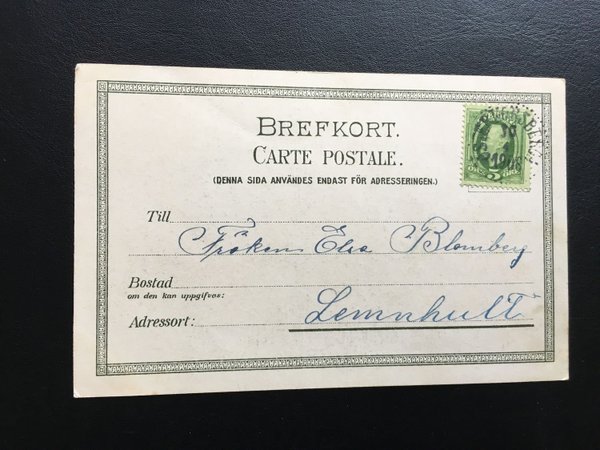 BREFKORT.
CARTE POSTALE.
(DENNA SIDA ANVÄNDES ENDAST FÖR ADRESSERINGEN.)
Till
Fröken Elsa Blomberg
Bostad
om den kan uppgifvas:
Lemnhult
Adressort:
5
ÖRE